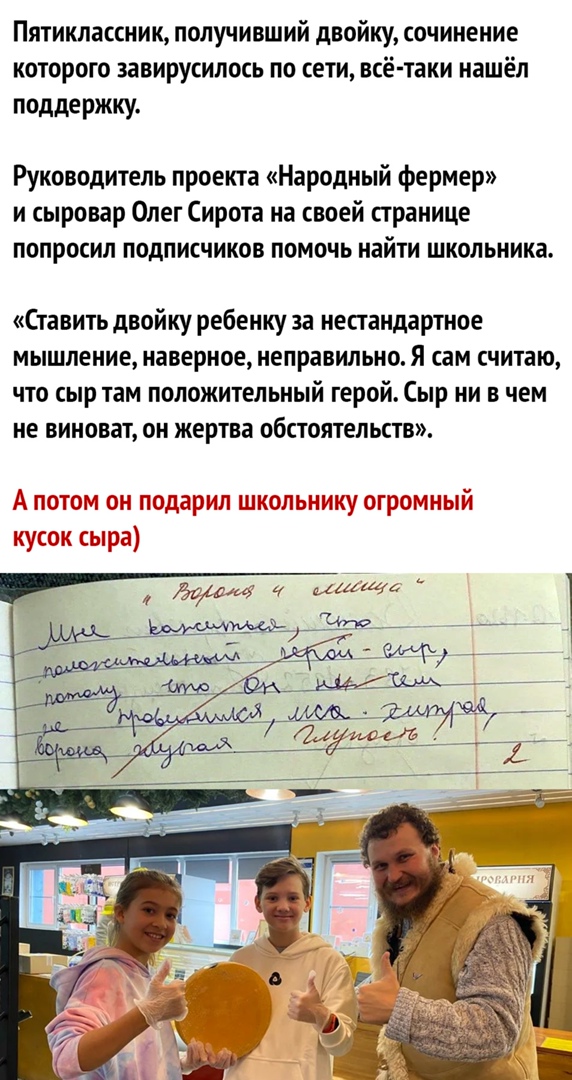 Пятиклассник, получивший двойку, сочинение
которого завирусилось по сети, всё-таки нашёл
поддержку.
Руководитель проекта «Народный фермер»
и сыровар Олег Сирота на своей странице
попросил подписчиков помочь найти школьника.
«Ставить двойку ребенку за нестандартное
мышление, наверное, неправильно. Я сам считаю,
что сыр там положительный герой. Сыр ни в чем
не виноват, он жертва обстоятельств».
А потом он подарил школьнику огромный
кусок сыра)
"Ворона и лисица"
Мне кажиться, что
положительный герой - сыр,
потому что он ни чем
не провинился, лиса - хитрая,
ворона глупая Глупость!
2
СЫРОВАРНЯ